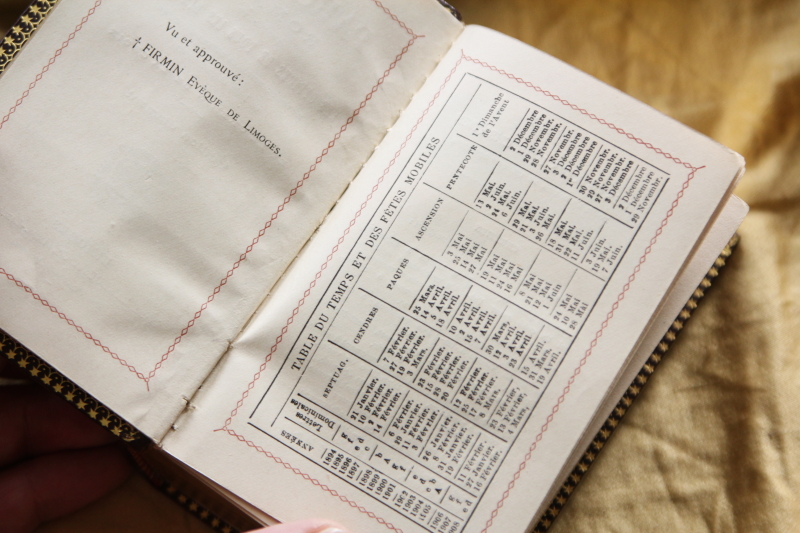 Vu et approuvé:
† FIRMIN Evêque de Limoges.
TABLE DU TEMPS ET DES FÊTES MOBILES
ANNÉES Lettres Dominicales SEPTUAG. CENDRES PAQUES ASCENSION PENTECOTE 1er Dimanche de l'Avent
1894 g 21 Janvier. 7 Février. 25 Mars. 3 Mai 2 Décembre
1895 f 10 Février. 27 Février. 14 Avril. 2 Juin. 1 Décembre
1896 e d 2 Février. 19 Février. 14 Mai 29 Novembr.
1897 14 Février. 3 Mars. 18 Avril. 27 Mai 6 Juin. 28 Novembr.
1898 b 6 Février. 23 Février. 10 Avril. 19 Mai 29 Mai. 27 Novembr.
1899 A 29 Janvier. 15 Février. 2 Avril. 11 Mai 21 Mai. 3 Décembre
1900 g 11 Février. 28 Février. 15 Avril. 24 Mai 3 Juin.
1901 f 3 Février. 20 Février. 7 Avril. 16 Mai 26 Mai.
1902 e 26 Janvier. 12 Février. 30 Mars. 8 Mai 18 Mai. 30 Novembr.
1903 d 8 Février. 12 Avril. 21 Mai
1904 31 Janvier. 17 Février. 12 Mai 22 Mai. 27 Novembr.
19 Février. 8 Mars. 23 Avril 1 Juin 11 Juin. 3 Décembre
1906 g 11 Février. 15 Avril. 24 Mai 3 Juin. 2 Décembre
1907 f 27 Janvier. 13 Février. 31 Mars. 19 Mai. 1 Décembre
e d 16 Février. 4 Mars. 19 Avril. 28 Mai 7 Juin. 29 Novembr.